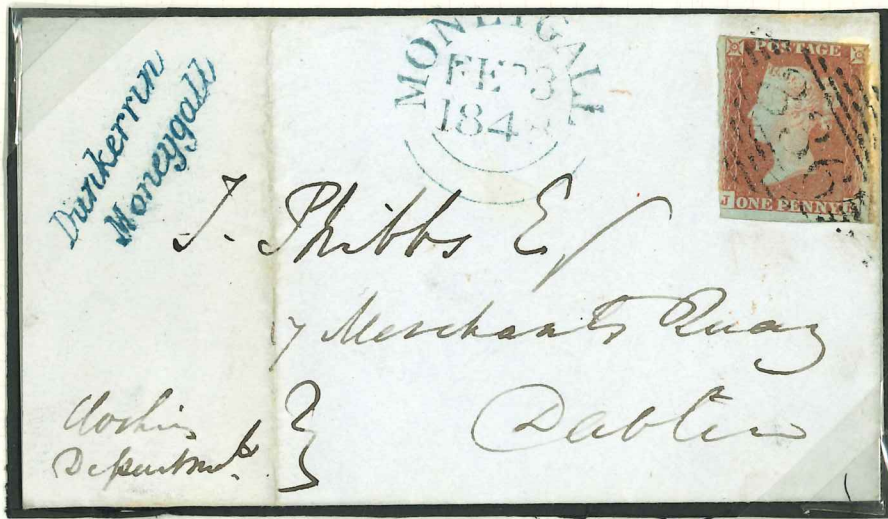 Dunkerrin
Moneygall
MONEYGALL
FE 23
184
POSTAGE
836
J ONE PENNY
J. Phibbs E
7 Merchants Quay
Dublin
Clothing
Department